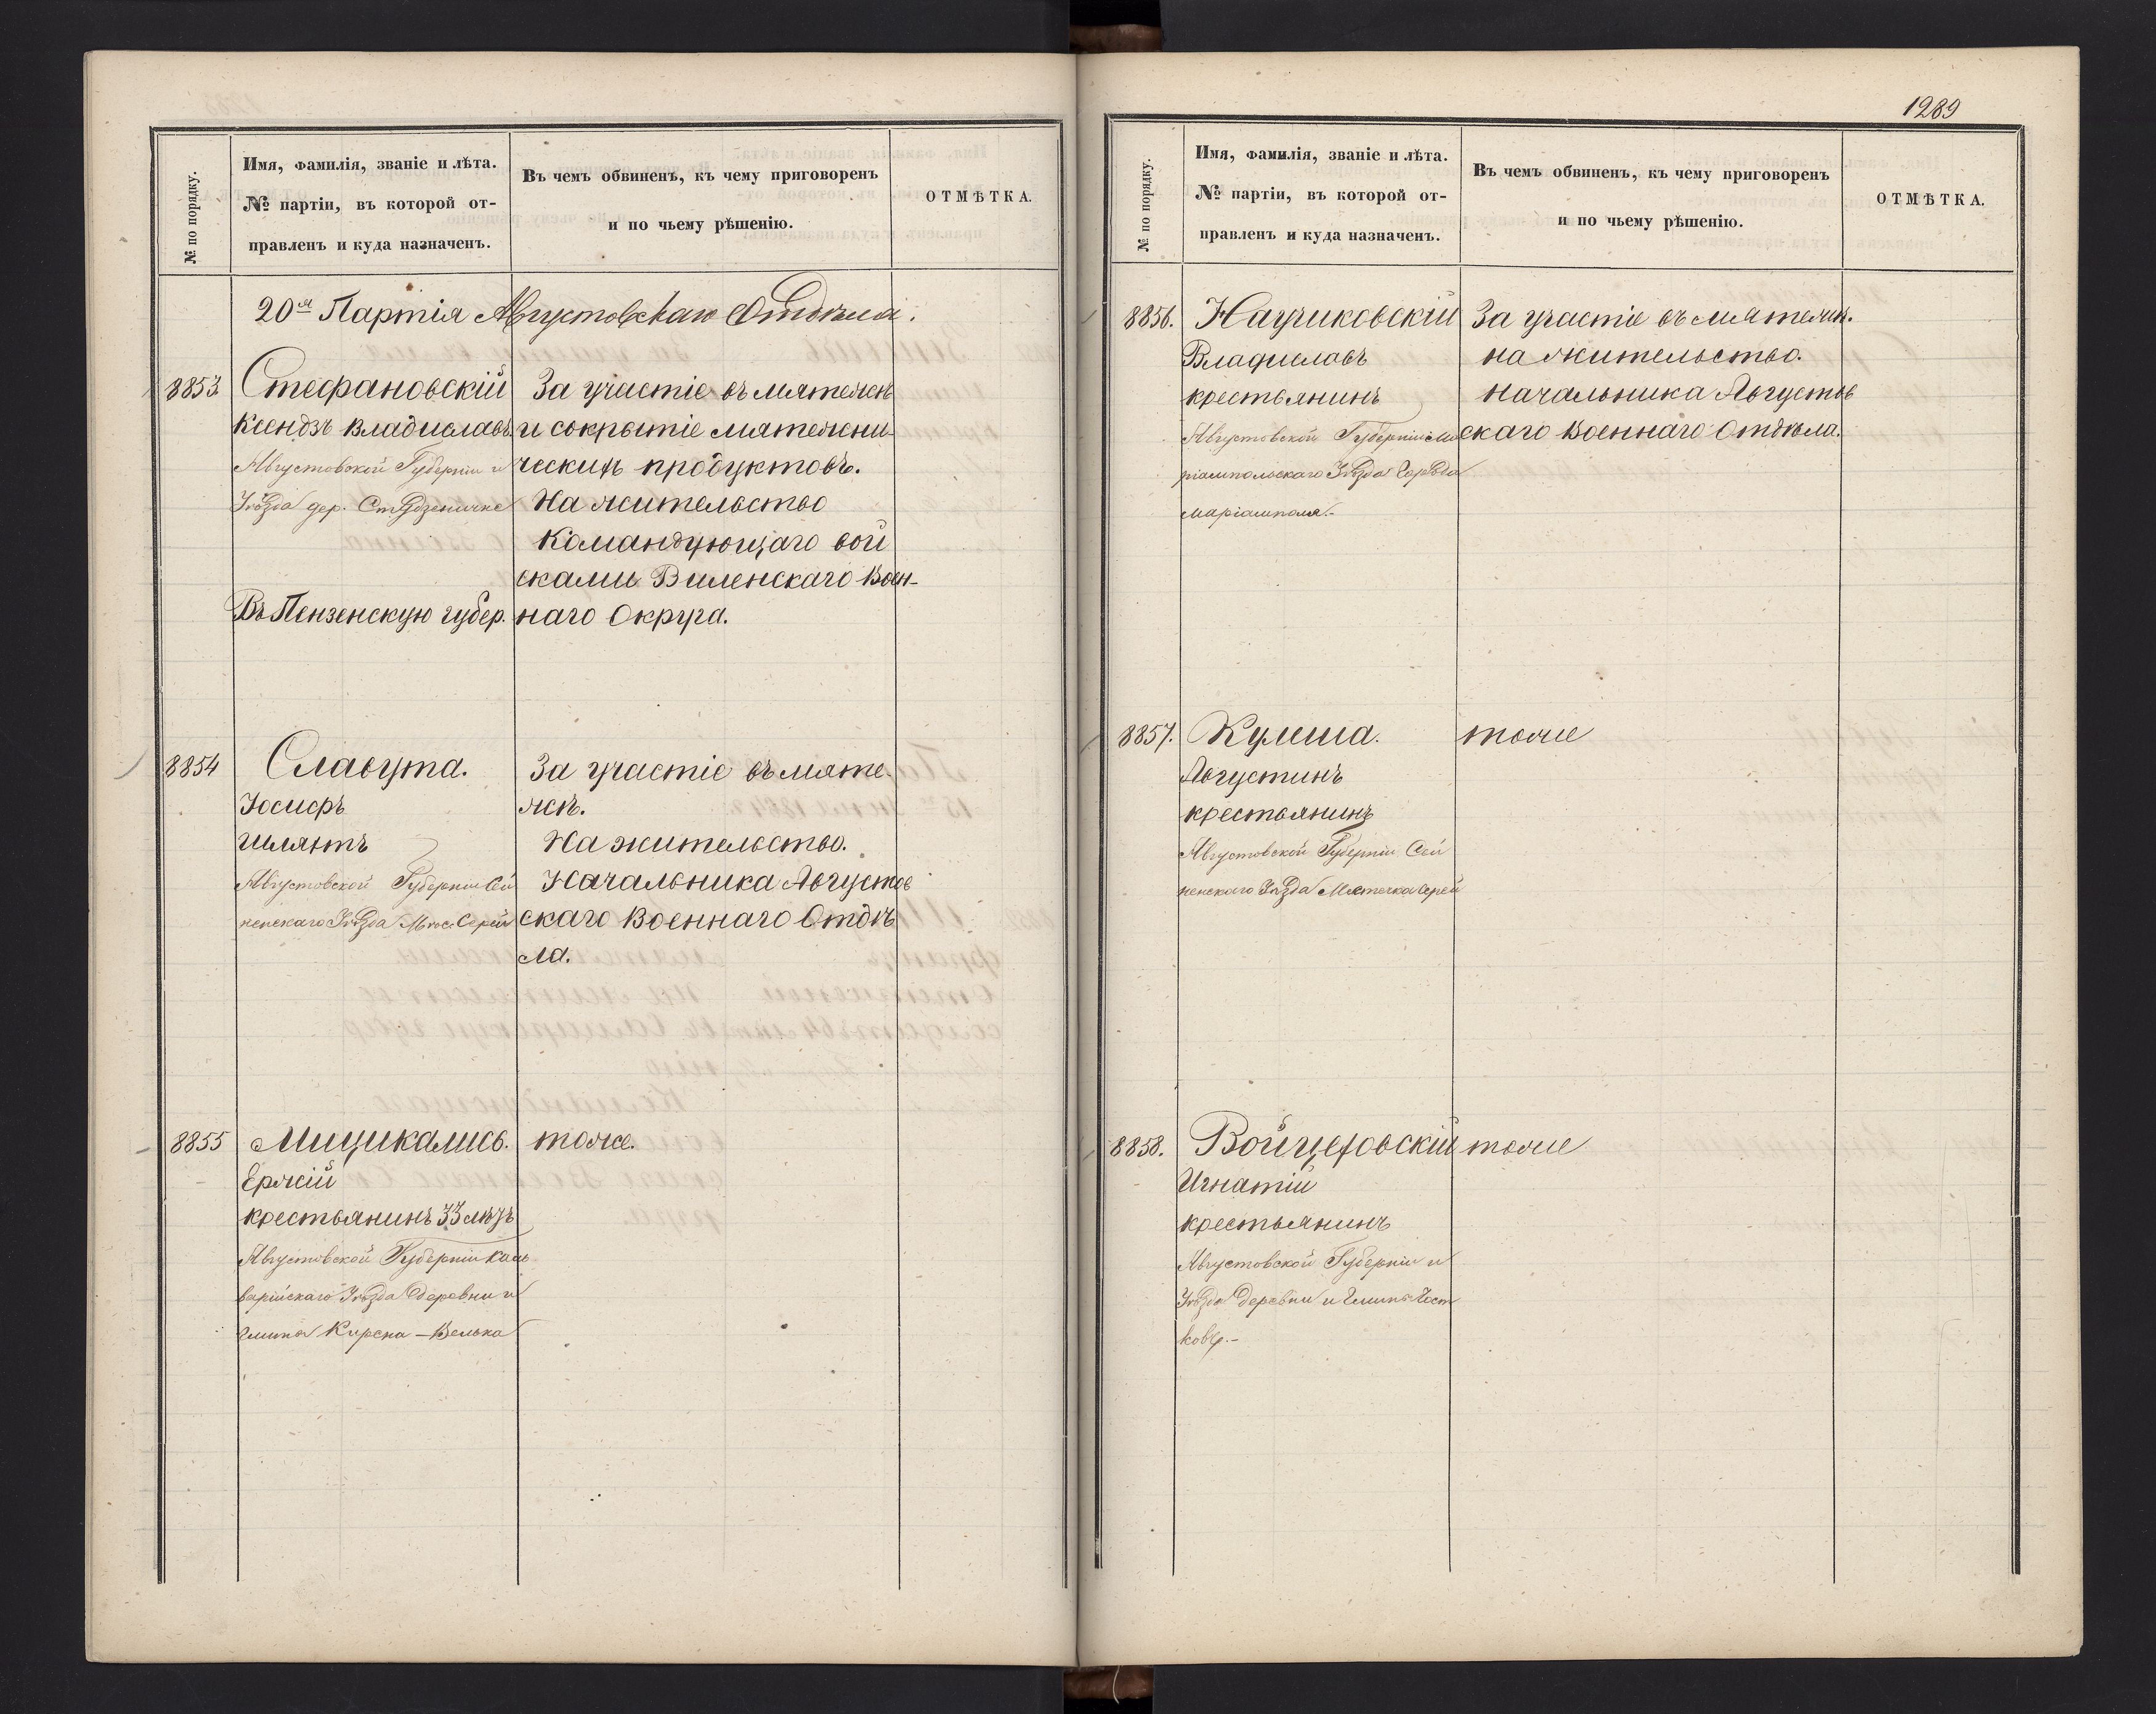 № по порядку.
Имя, фамилія, званіе и лѣта.
№ партіи, въ которой от-
правленъ и куда назначенъ.
Въ чемъ обвиненъ, къ чему приговоренъ
и по чьему рѣшенію.
ОТМѢТКА.
20я Партія Августовскаго Отдѣла.
8853.
Стефановскій
Ксендзъ Владиславъ.
Августовской Губерніи и
Уѣзда дер. Студзеничне
Въ Пензенскую губер.
За участіе въ мятежѣ
и сокрытіе мятежни-
ческихъ продуктовъ.
На жительство
Командующаго вой
сками Виленскаго Воен-
наго Округа.
8854
Славута.
Іосифъ
шляхт
Августовской Губерніи Сей
ненскаго Уѣзда Мѣс. Серей
За участіе въ мяте-
жѣ.
На жительство.
Начальника Августов
скаго Военнаго Отдѣ
ла.
8855
Мицикалисъ.
Ержій
крестьянинъ 33 лѣтъ
Августовской Губерніи Каль
варійскаго Уѣзда Деревни и
Гмина Кирсна-Велька
тоже.
1289
№ по порядку.
Имя, фамилія, званіе и лѣта.
№ партіи, въ которой от-
правленъ и куда назначенъ.
Въ чемъ обвиненъ, къ чему приговоренъ
и по чьему рѣшенію.
ОТМѢТКА.
8856.
Владиславъ
крестьянинъ
Августовской Губерніи Ма
ріампольскаго Уѣзда Города
Маріамполя.-
За участіе въ мятежѣ.
на жительство.
Начальника Августов
скаго Военнаго Отдѣла.
8857.
Кулеша.
Августинъ
крестьянинъ
Августовской Губерніи Сей
ненскаго Уѣзда Местечка Серей
тоже
8858.
Войцеховскій
Игнатій
крестьянинъ
Августовской Губерніи и
Уѣзда Деревни и Гмины
тоже